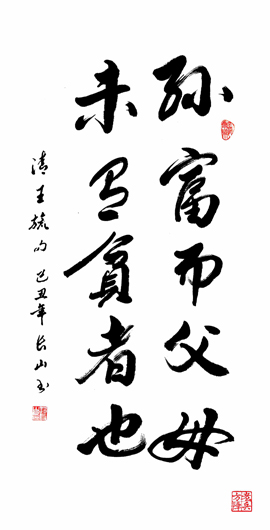 孙富而父母
未有貧者也
清王 句己丑年长山书